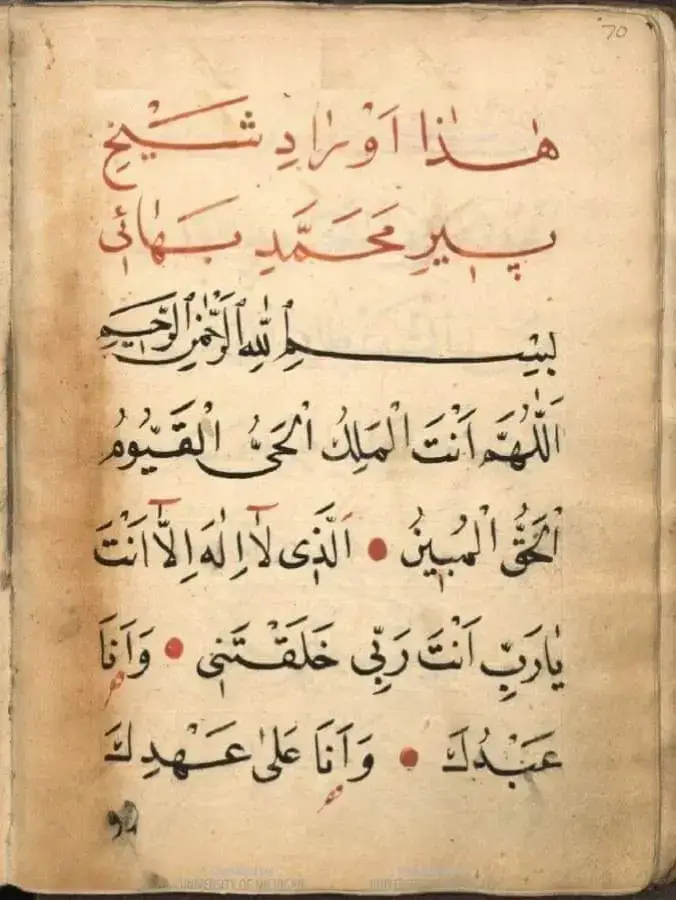 70
هٰذا اَوْرادِ شَيْخِ
پيرِ مُحَمَّدِ بَهائى
بِسْمِ اللهِ الرَّحْمٰنِ الرَّحيمِ
اَللّٰهُمَّ اَنْتَ الْمَلِكُ الْحَىُّ الْقَيُّومُ
الْحَقُّ الْمُبينُ ● اَلَّذى لَا اِلٰهَ اِلَّا اَنْتَ
يٰارَبِّ اَنْتَ رَبّى خَلَقْتَنى ● وَاَنَا
عَبْدُكَ ● وَاَنَا عَلىٰ عَهْدِكَ
UNIVERSITY OF MICHIGAN